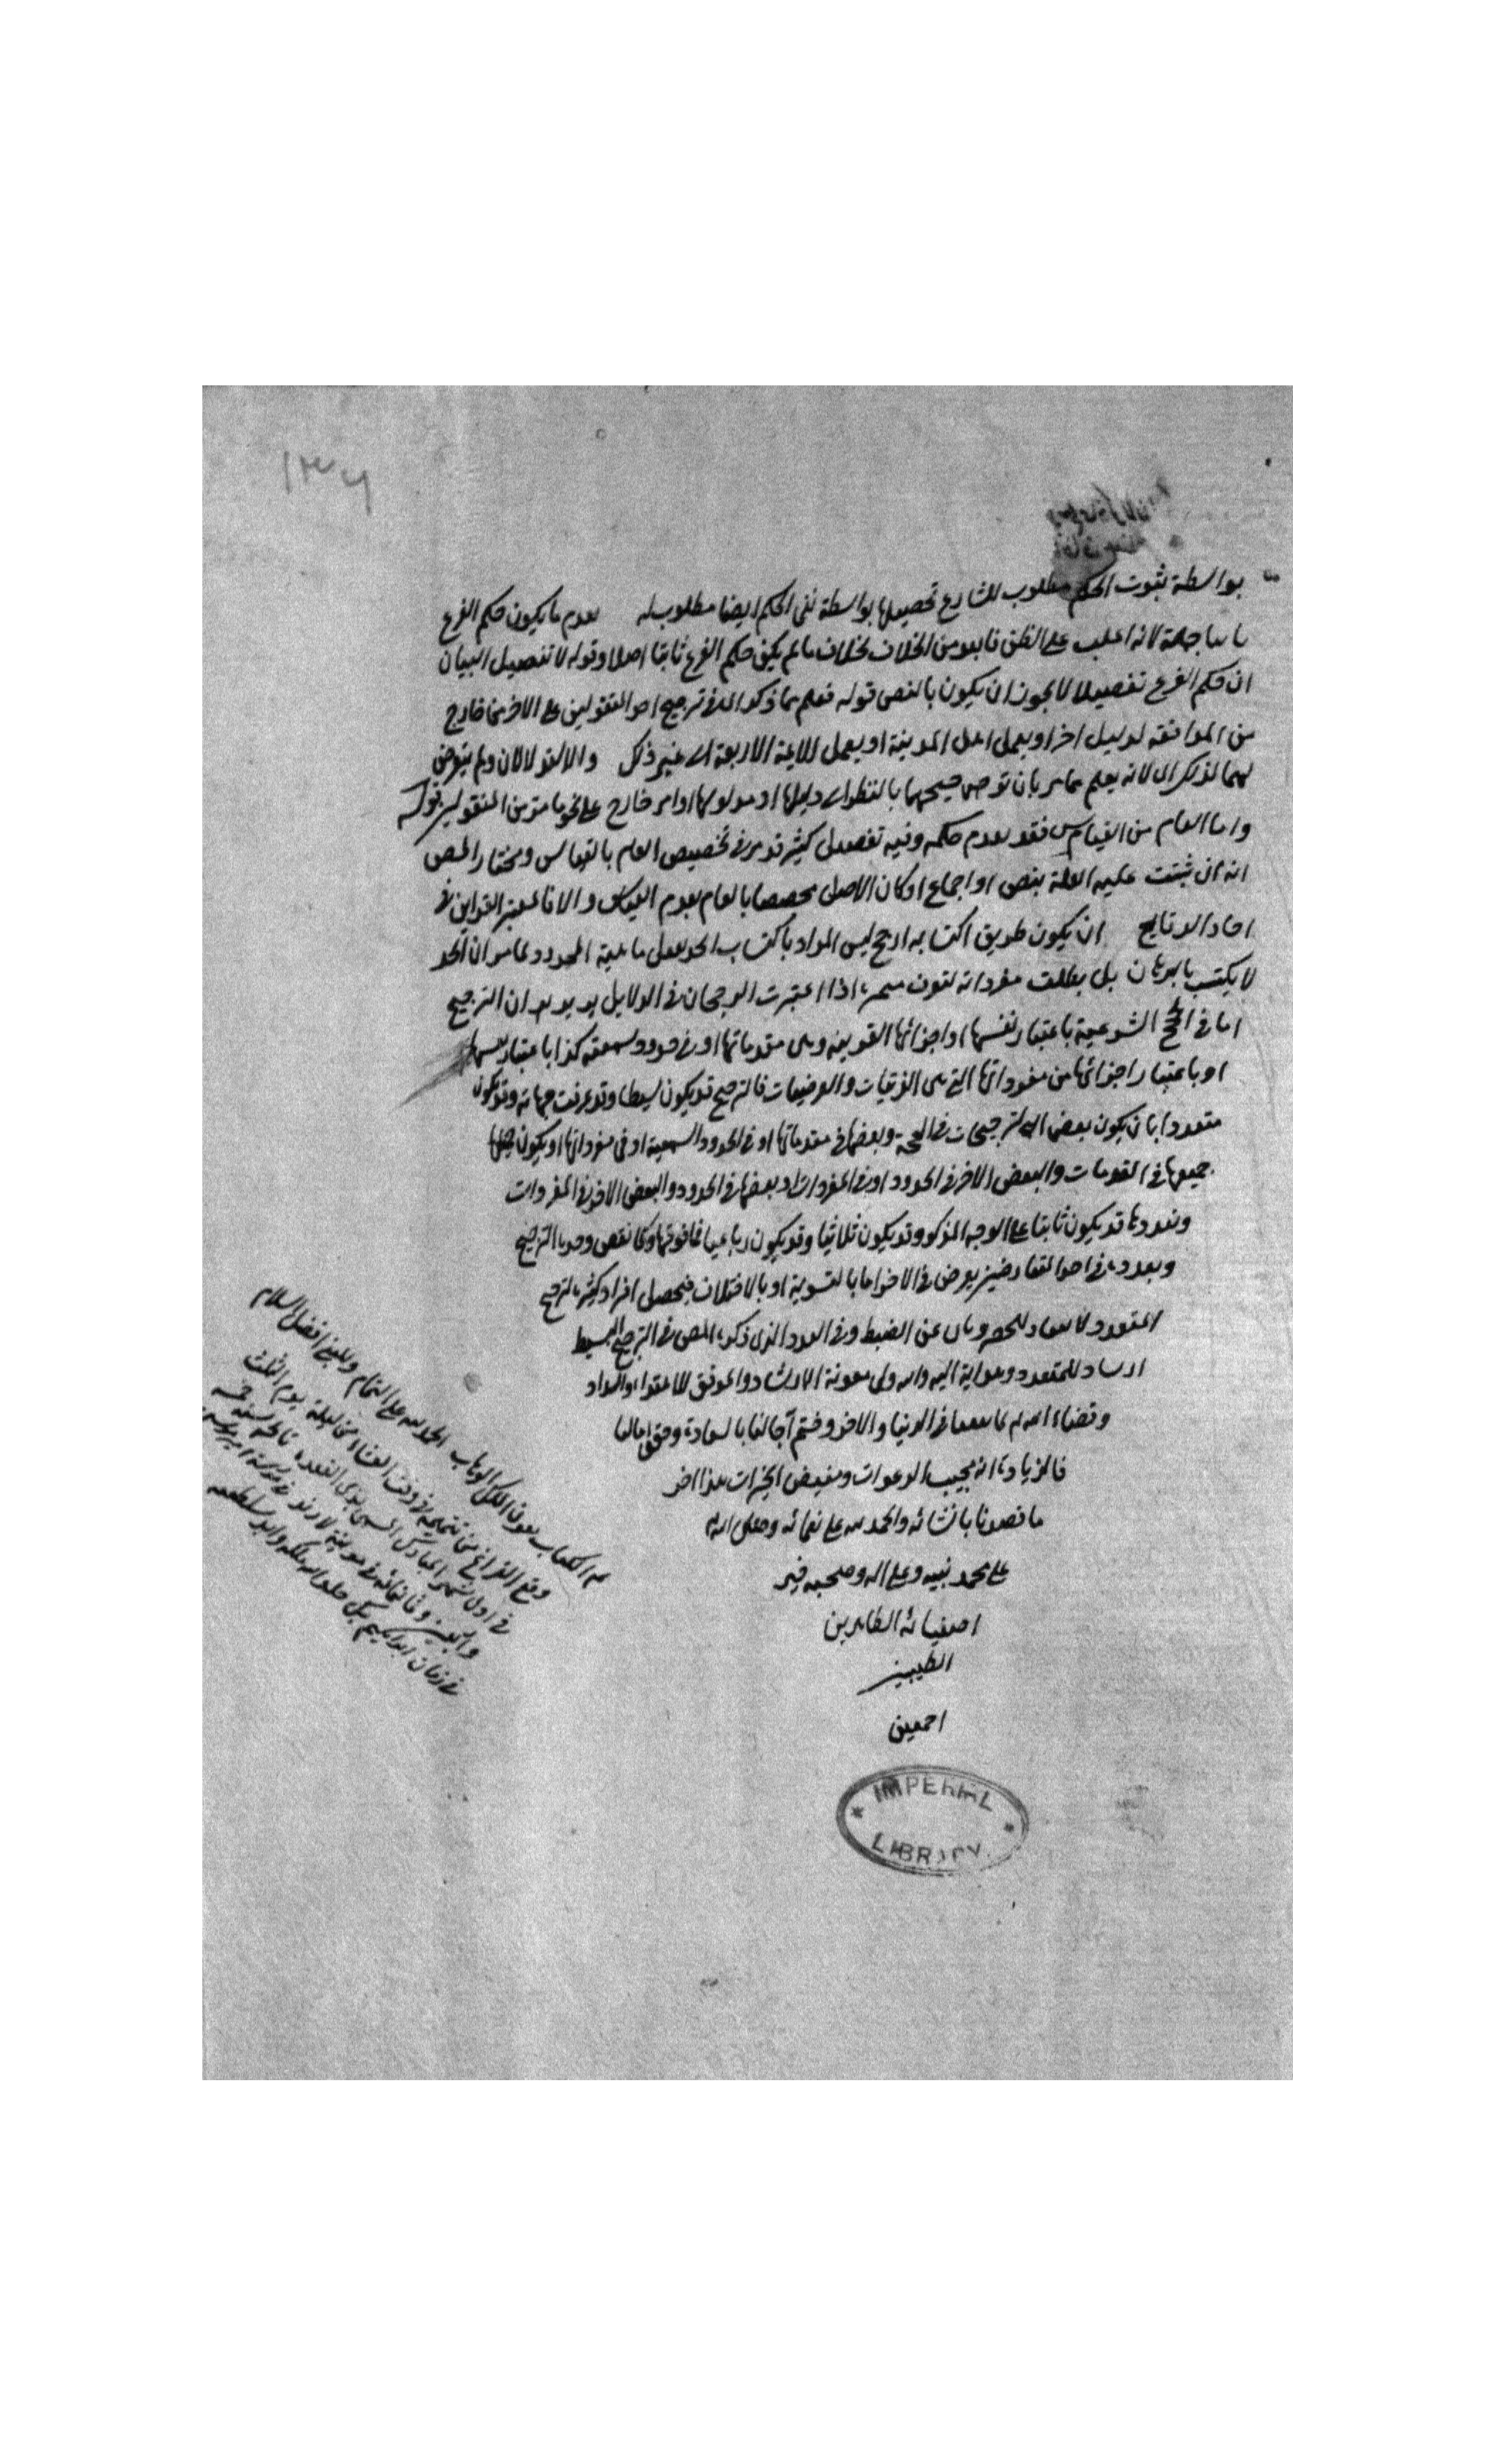 ١٣٦
بواسطة ثبوت الحكم مطلوب للشارع تحصيلها بواسطة نفى الحكم ايضا مطلوب له يقدم ما يكون حكم الفرع
ثابتا جملة لانه اغلب على الظن وابعد من الخلاف بخلاف ما لم يكن حكم الفرع ثابتا اصلا وقوله لا تفصيل البيان
ان حكم الفرع تفصيلا لا يجوز ان يكون بالنص قوله فعلم مما ذكر اى فى ترجيح احد المنقولين على الاخر من خارج
من الموافقه لدليل اخر او بعمل اهل المدينة او بعمل للايمة الاربعة الى غير ذلك والا لقد لا كان ولم يتعرض
لهما لذلك اى لانه يعلم مما مر بان ترجيحهما بالنظر الى دليلها او مدلولها او امر خارج على نحو ما مر من المنقولين قوله
واما العام من القياس فقد يقدم حكمه وفيه تفصيل كثير قد مر فى تخصيص العام بالقياس ومختار المص
انه ان ثبتت علية العلة بنص او اجماع او كان الاصل مخصصا بالعام يقدم القياس والا فالمعتبر القراين فى
احاد الوقايع ان يكون طريق اكتسابه ارجح ليس المراد باكتساب الحد ماهية المحدود لما مر ان الحد
لا يكتسب بالبرهان بل بطلب مفرداته اذا اعتبرت الرجحان فى الدلايل يريد ان الترجيح
اما فى الحجج الشرعية باعتبار نفسها او اجزائها القريبة وهى مقدماتها او فى حدود سمعية كذا باعتبار نفسها
او باعتبار اجزائها من مفرداتها التى هى الذاتيات والعرضيات فالترجيح قد يكون بسيطا وقد عرفت جهاته وقد يكون
متعددا بان يكون بعض الترجيحات فى الحجة وبعضها فى مقدماتها او فى الحدود السمعية او فى مفرداتها او يكون
جميعها فى المقدمات والبعض الاخر فى الحدود او فى المفردات او بعضها فى الحدود والبعض الاخر فى المفردات
وتعددها قد يكون ثنائيا على الوجه المذكور وقد يكون ثلاثيا وقد يكون رباعيا فما فوقها وكما نقص وحدة الترجيح
وتعدده فى احد المتعارضين يعرض فى الاخر اما بالتسوية او بالاختلاف فيحصل افراد كثيرة لترجيح
المتعدد لا تعاد للحصر عن الضبط وفى العدد الذى ذكره المص فى الترجيح البسيط
ارشاد للمتعدد وهداية اليه والله ولى معونة الارشاد والموفق للاهتداء والسداد
الدنيا والاخرة وختم آجالنا بالسعادة وحقق امالنا
فالزيادة انه مجيب الدعوات ومفيض الخيرات هذا اخر
ما قصدنا بانشائه والحمد لله على نعمائه وصلى الله
على محمد نبيه وعلى اله وصحبه خير
اصفيائه الطاهرين
الطيبين
اجمعين
تم الكتاب بعون الملك الوهاب الحمد لله على التمام وللنبى افضل السلام
وقع الفراغ من تتميمه فى وقت العشاء من ليلة يوم الثلث
فى اول شهر المبارك المسمى بذى القعده تاريخه سنه خمسه
واربعين وثمانمائه فى مدينة لارنده
فى زمان ابراهيم بك خلد الله ملكه وابد سلطنته
IMPERIAL
LIBRARY